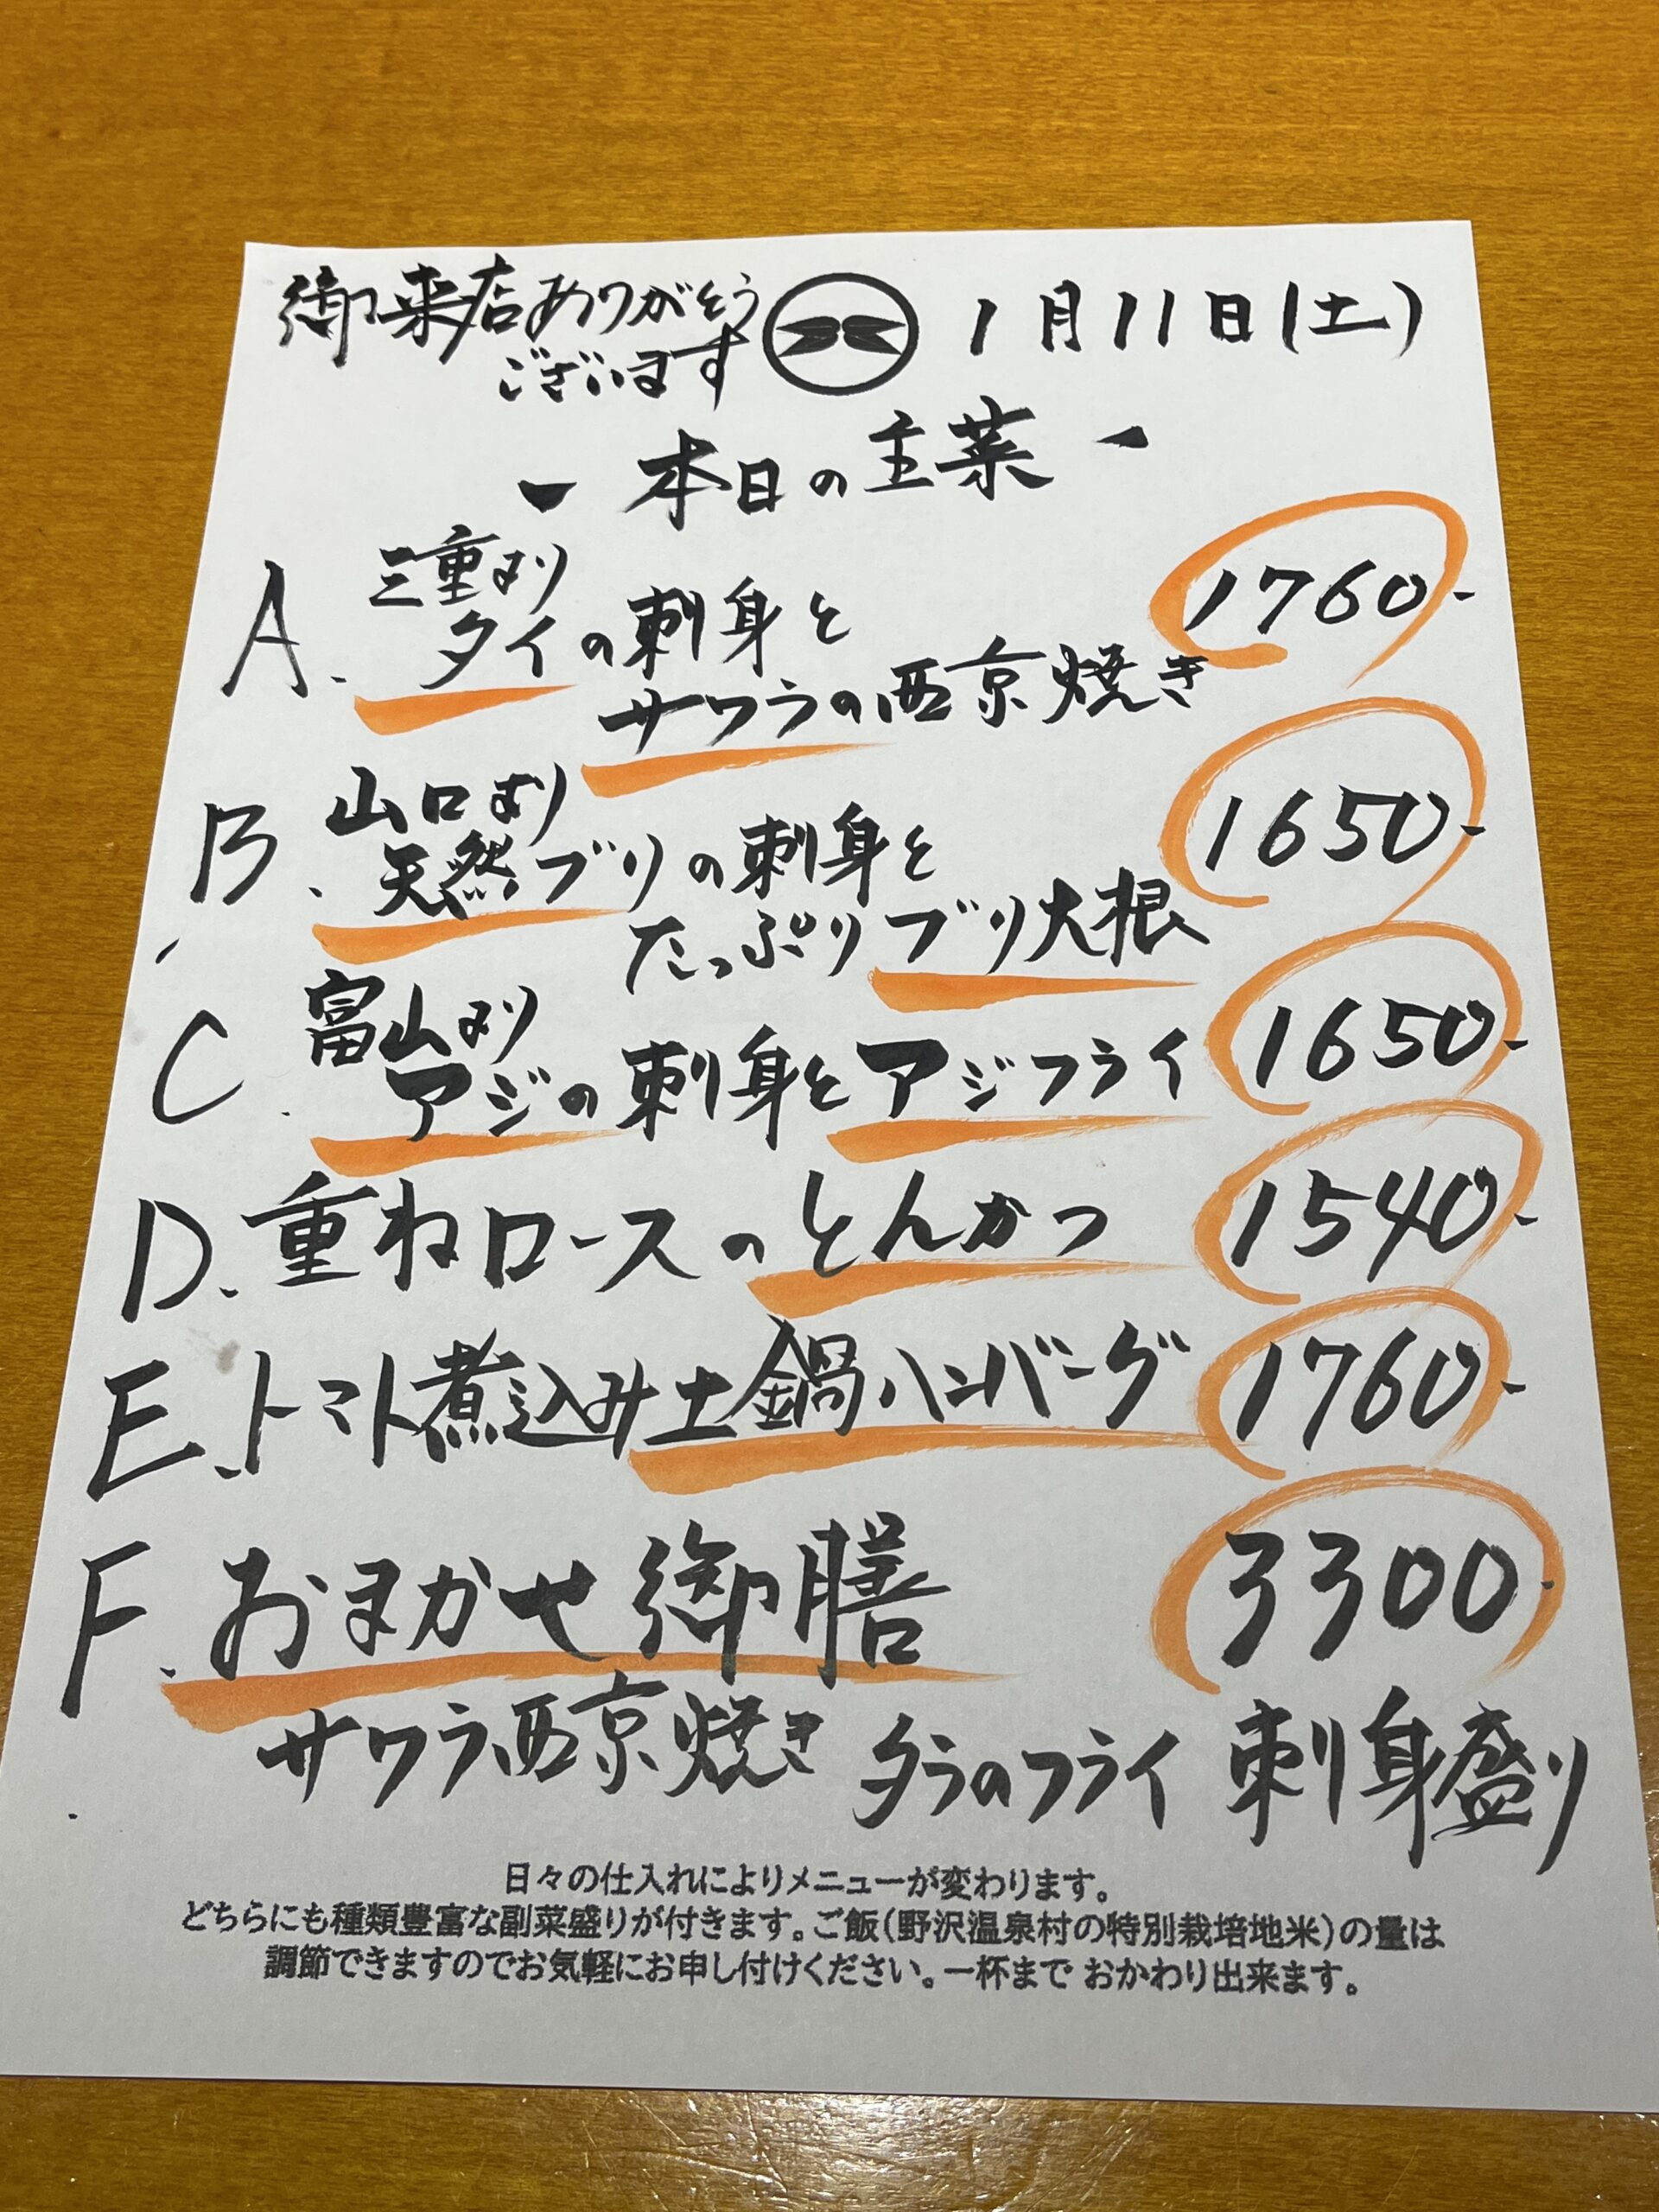 御来店ありがとう
ございます
1月11日(土)
- 本日の主菜 -
A. 三重より
タイの刺身と
サワラの西京焼き
1760-
B. 山口より
天然ブリの刺身と
たっぷりブリ大根
1650-
C. 富山より
アジの刺身とアジフライ
1650-
D. 重ねロースのとんかつ 1540-
E. トマト煮込み土鍋ハンバーグ 1760-
F. おまかせ御膳 3300-
サワラ西京焼き タラのフライ 刺身盛り
日々の仕入れによりメニューが変わります。
どちらにも種類豊富な副菜盛りが付きます。ご飯(野沢温泉村の特別栽培地米)の量は
調節できますのでお気軽にお申し付けください。一杯まで おかわり出来ます。